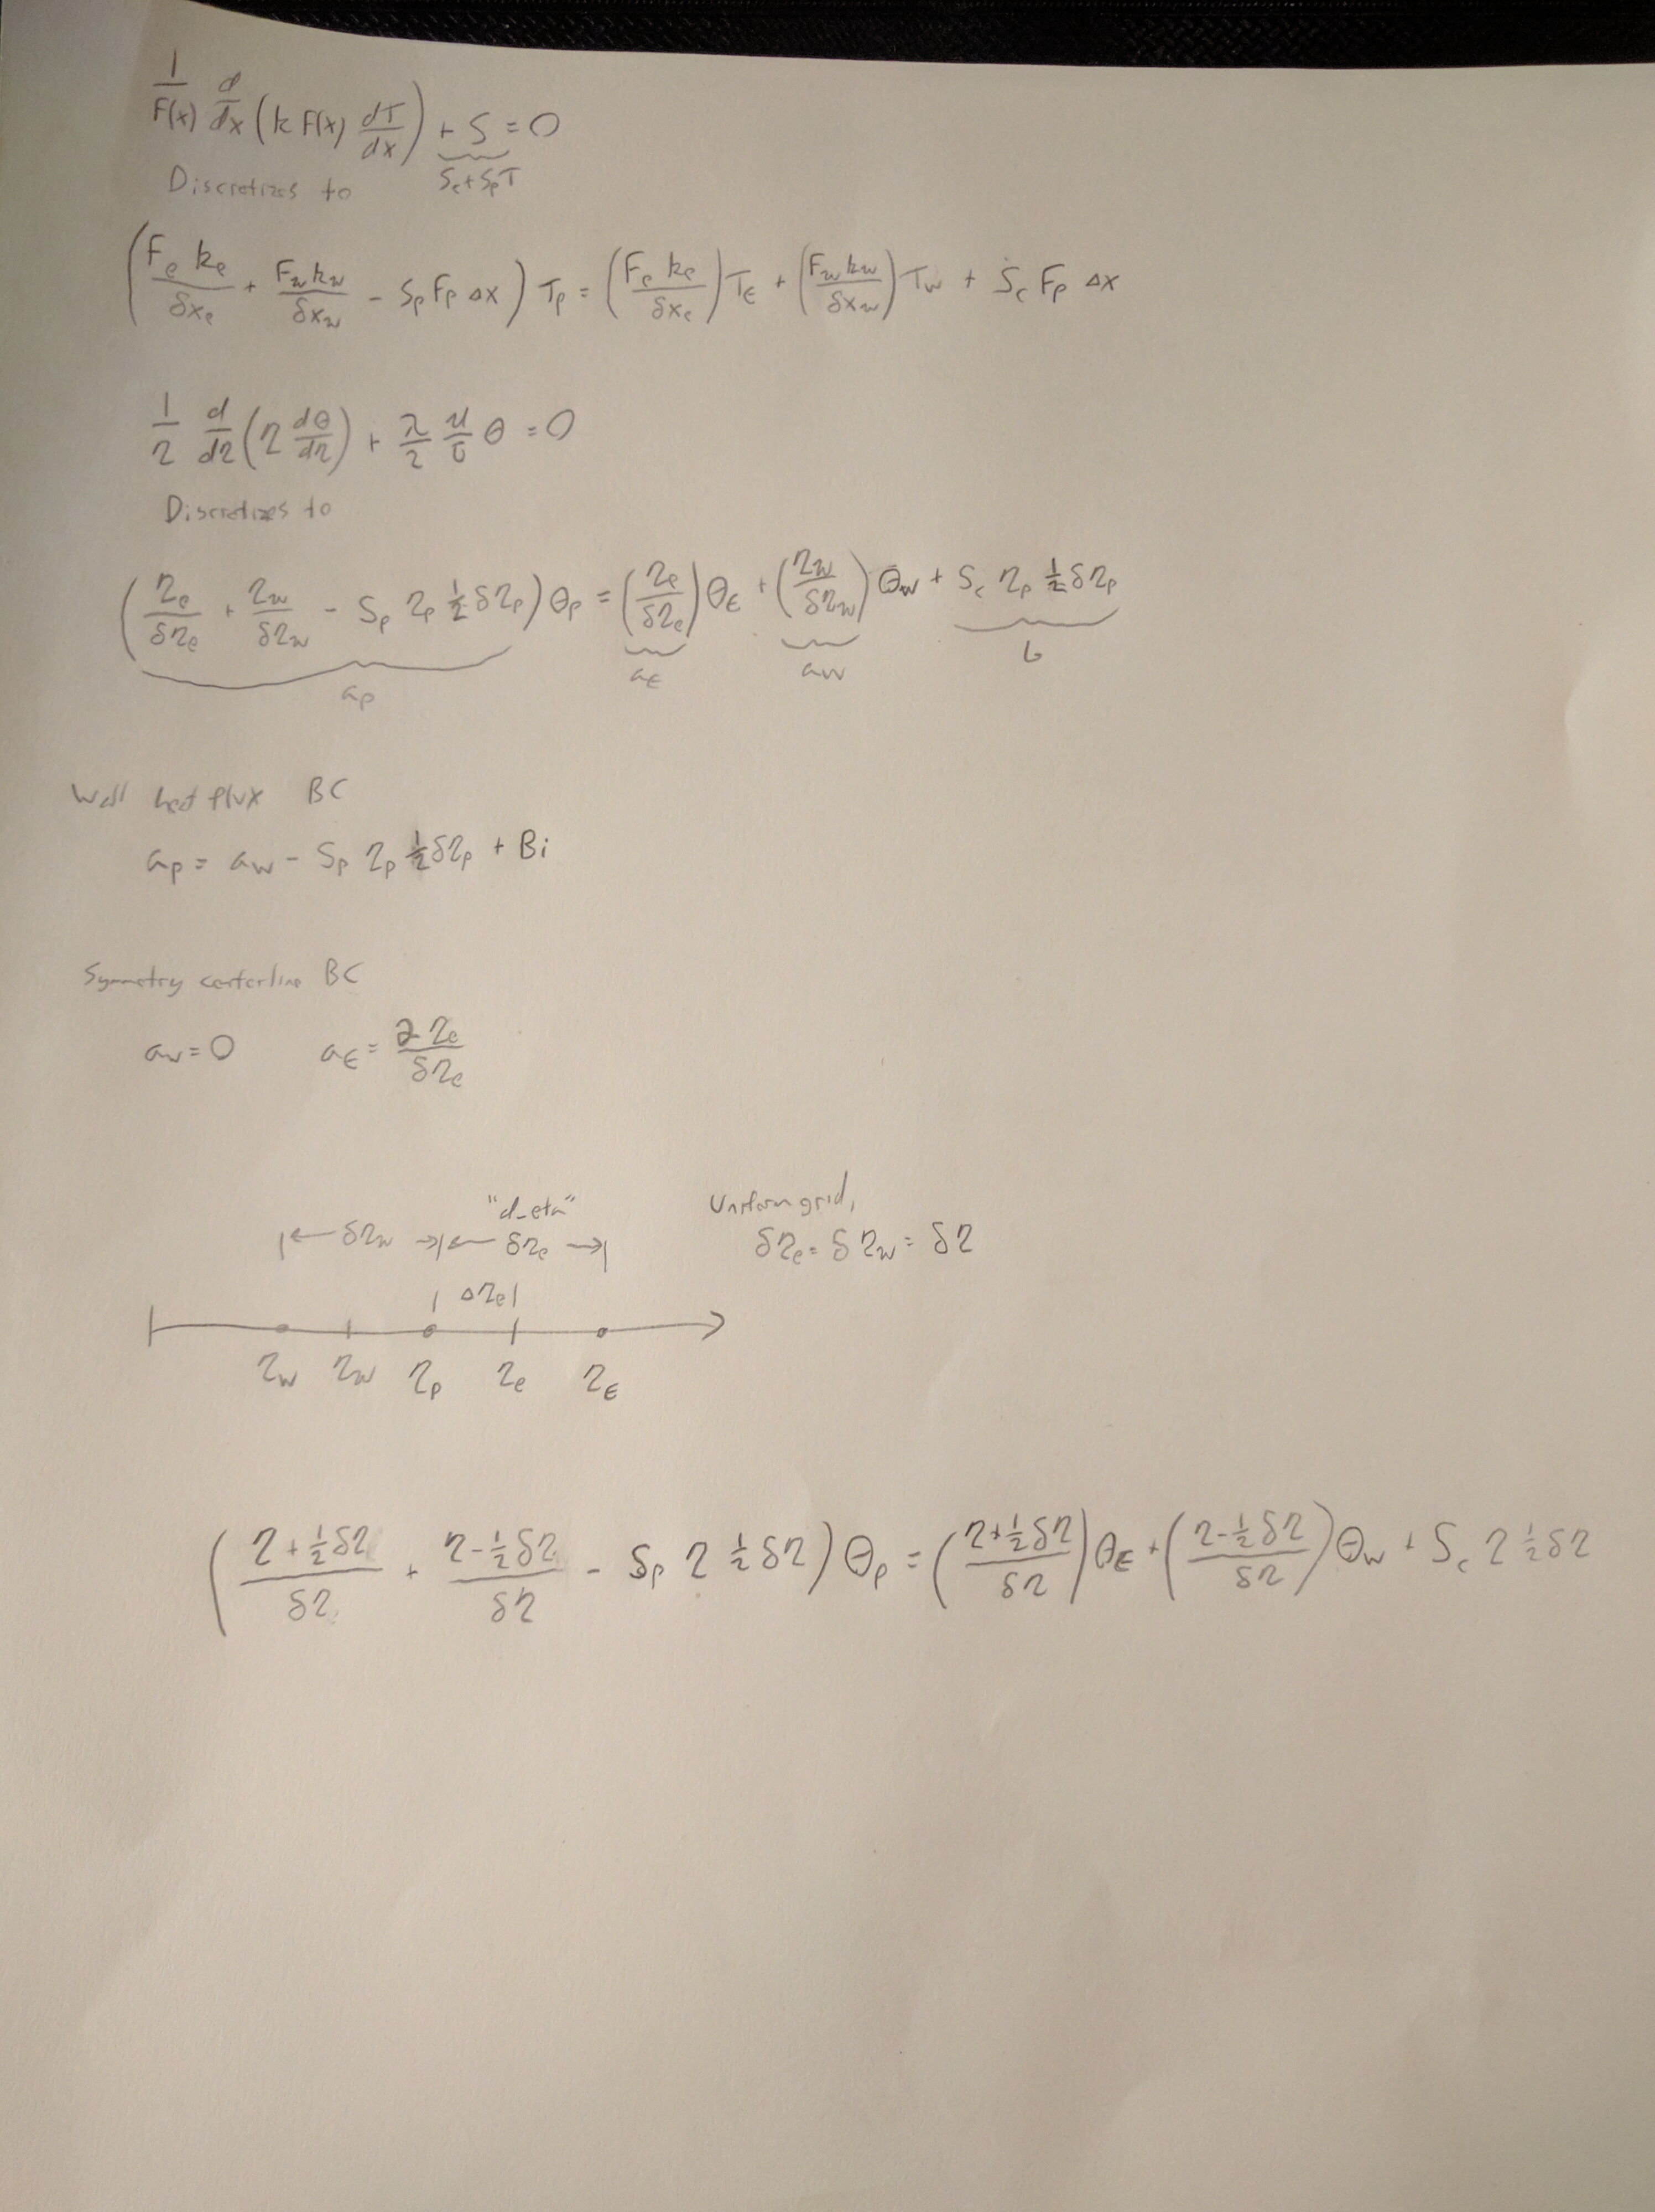 1/F(x) d/dx (k F(x) dT/dx) + S = 0
Sc + SpT
Discretizes to
(Fe ke/δxe + Fw kw/δxw - Sp Fp Δx) Tp = (Fe ke/δxe) TE + (Fw kw/δxw) TW + Sc Fp Δx
1/η d/dη (η dθ/dη) + λ/2 u/ū θ = 0
Discretizes to
(ηe/δηe + ηw/δηw - Sp ηp ½ δηp) θp = (ηe/δηe) θE + (ηw/δηw) θW + Sc ηp ½ δηp
ap aE aW b
Wall heat flux BC
ap = aW - Sp ηp ½ δηp + Bi
Symmetry centerline BC
aW = 0 aE = 2 ηe/δηe
"d_eta" Uniform grid,
δηw δηe δηe = δηw = δη
Δηe
ηW ηw ηp ηe ηE
((η + ½ δη)/δη + (η - ½ δη)/δη - Sp η ½ δη) θp = ((η + ½ δη)/δη) θE + ((η - ½ δη)/δη) θW + Sc η ½ δη